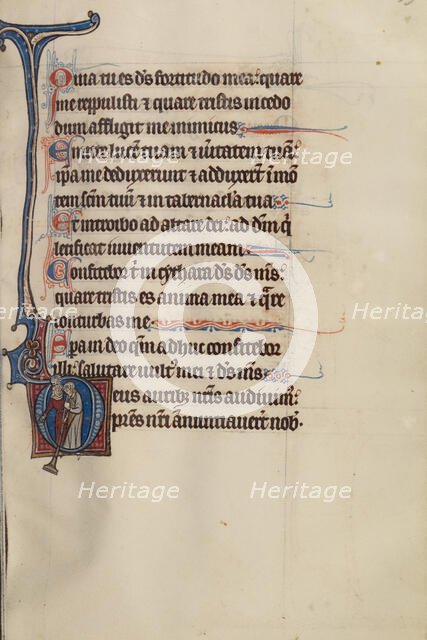 Quia tu es ds fortitudo mea: quare
me reppulisti & quare tristis incedo
dum affligit me inimicus.
Emitte lucem tuam & uitatem tuã:
ipsa me deduxerunt & adduxert ĩ mõ
tem scm tuũ & in tabernacla tua.
Et introibo ad altare dei: ad dm q
letificat iuuentutem meam.
Confitebor t in cythara ds ds ms:
quare tristis es anima mea & qre
conturbas me.
Spera in deo qm adhuc confitebor
illi: salutare uult mei & ds ms.
Deus auribz nris audiuim:
pres nri annuntiauert nob.
Heritage
Heritage
Heritage
Heritage
Heritage
Heritage
Heritage
Heritage